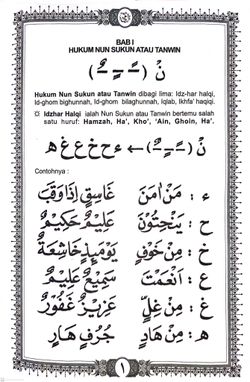 BAB I
HUKUM NUN SUKUN ATAU TANWIN
نْ (ــًــ ــٍــ ــٌــ)
Hukum Nun Sukun atau Tanwin dibagi lima: Idz-har halqi,
Id-ghom bighunnah, Id-ghom bilaghunnah, Iqlab, Ikhfa' haqiqi.
Idzhar Halqi ialah Nun Sukun atau Tanwin bertemu salah
satu huruf: Hamzah, Ha', Kho', 'Ain, Ghoin, Ha'.
نْ (ــًــ ــٍــ ــٌــ) ← ء ح خ ع غ ه
Contohnya :
ء : مَنْ اٰمَنَ غَاسِقٍ اِذَا وَقَبَ
ح : يَنْحِتُوْنَ عَلِيْمٌ حَكِيْمٌ
خ : مِنْ خَوْفٍ يَوْمَئِذٍ خَاشِعَةٌ
ع : اَنْعَمْتَ سَمِيْعٌ عَلِيْمٌ
غ : مِنْ غِلٍّ عَزِيْزٌ غَفُوْرٌ
ه : مِنْ هَادٍ جُرُفٍ هَارٍ
١